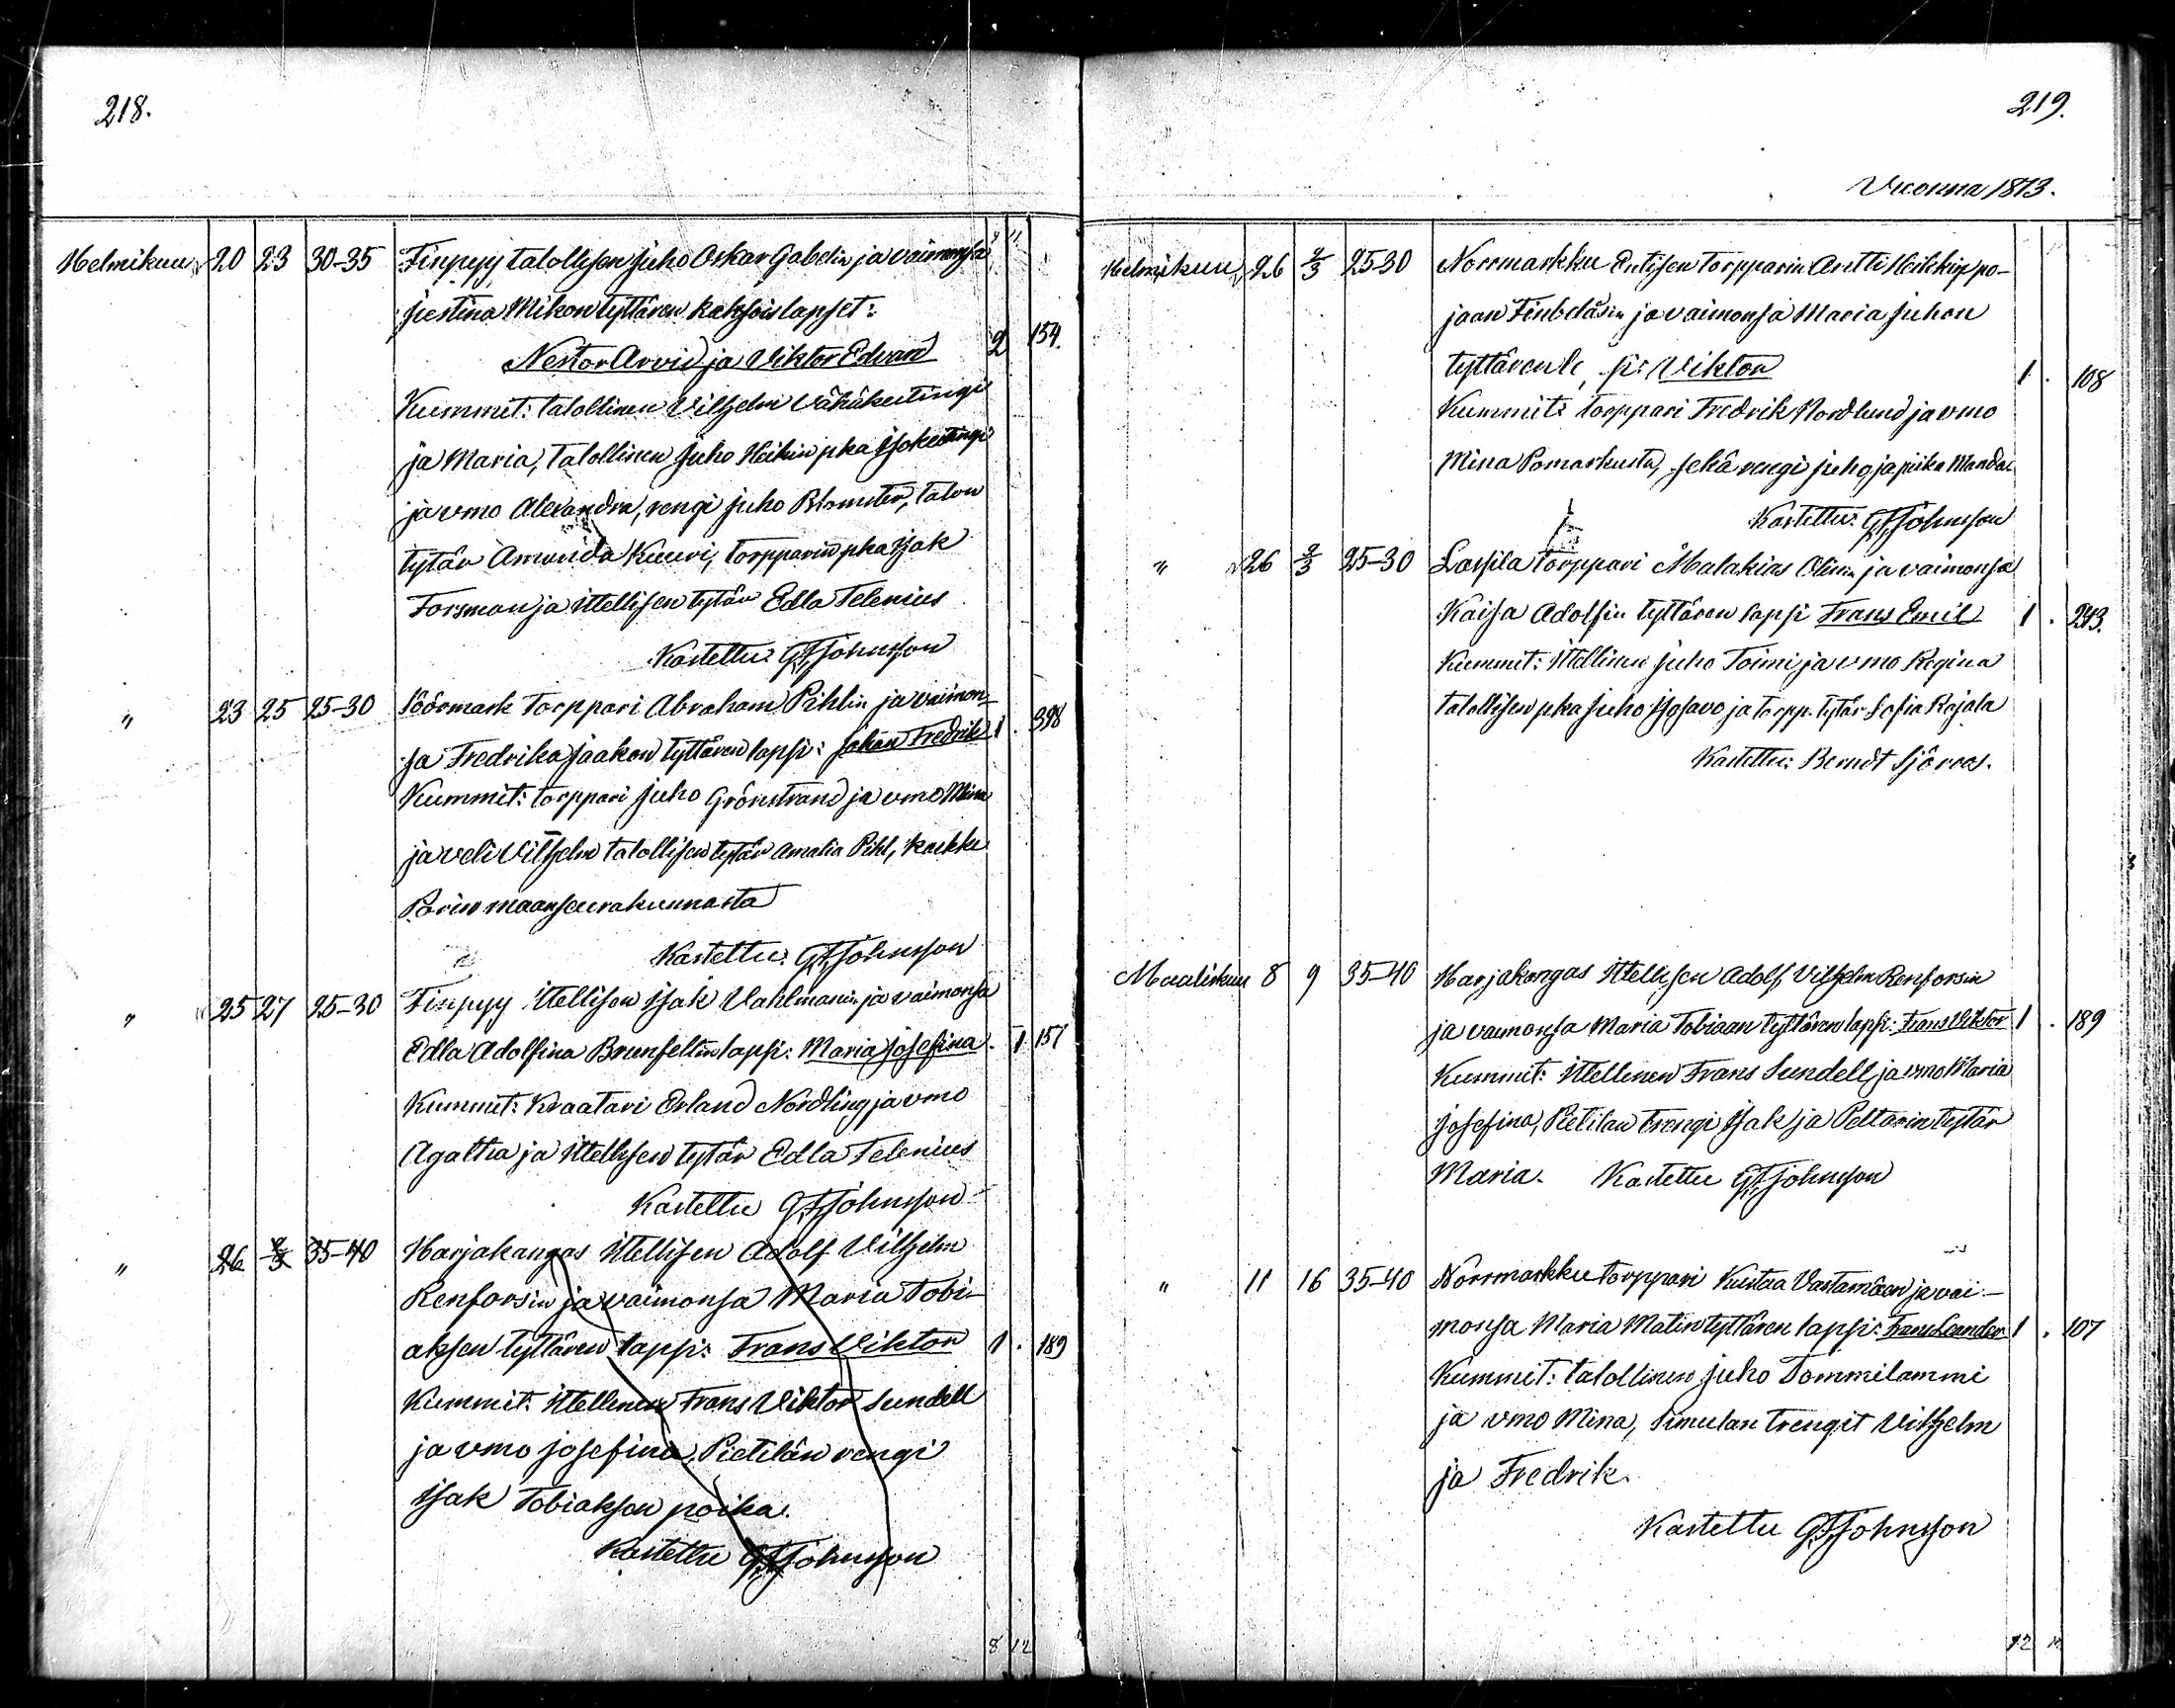 218.
Helmikuu 20 23 30-35 Finpyy talollisen Juho Oskar Gabelin ja vaimonsa
Justina Mikon tyttären kaksoislapset:
Nestor Arvid ja Viktor Edvard 2 154.
Kummit: talollinen Vilhelm Vähäkeitingi
ja Maria, talollinen Juho Heikin pka Isokeitingi
ja vmo Alexandra, rengi Juho Blomster, talon
tytär Amanda Kuuri, torpparin pka Isak
Forsman ja ittellisen tytär Edla Telenius
Kastettu: G.F. Johnsson
" 23 25 25-30 Söörmark torppari Abraham Pihlin ja vaimon-
sa Fredrika Jaakon tyttären lapsi: Johan Fredrik 1. 398
Kummit: torppari Juho Grönstrand ja vmo Mina
ja veli Vilhelm talollisen tytär Amalia Pihl, kaikki
Porin maanseurakunnasta
Kastettu: G.F. Johnsson
" 25 27 25-30 Finpyy Ittellisen Isak Vahlmanin ja vaimonsa
Edla Adolfina Brunfeltin lapsi: Maria Josefina. 1 157
Kummit: Kraatari Erland Nordling ja vmo
Agatha ja ittellisen tytär Edla Telenius
Kastettu G.F. Johnsson
" 26 2/3 35-40 Harjakangas ittellisen Adolf Vilhelm
Renforsin ja vaimonsa Maria Tobi-
aksen tyttären lapsi: Frans Viktor 1. 189
Kummit: Ittellinen Frans Viktor Sundell
ja vmo Josefina, Pietilän rengi
Isak Tobiaksen poika.
Kastettu G.F. Johnsson
8 12
219.
Vuonna 1873.
Helmikuu 26 2/3 25-30 Norrmarkku Entisen torpparin Antti Heikkip po-
jaan ja vaimonsa Maria Juhon
Viktor 1. 108
Kummit: torppari Fredrik Nordlund ja vmo
Mina Pomarkusta, sekä rengi Juho ja piika Manda
Kastettu: G.F. Johnsson
" 26 2/3 25-30 Lassila torppari Malakias Olinin ja vaimonsa
Kaisa Adolfin tyttären lapsi Frans Emil 1. 243.
Kummit: Ittellinen Juho Toimi ja vmo Regina
talollisen pka Juho Isosavo ja torpp. tytär Sofia Rajala
Kastettu: Berndt Sjöroos.
Maaliskuu 8 9 35-40 Harjakangas Ittellisen Adolf Vilhelm Renforsin
ja vaimonsa Maria Tobiaan tyttären lapsi: Frans Viktor 1. 189
Kummit: Ittellinen Frans Sundell ja vmo Maria
Josefina, Pietilan trengi Isak ja Peltarin tytär
Maria. Kastettu G.F. Johnsson
" 11 16 35-40 Norrmarkku torppari Kustaa Vastamäen ja vai-
monsa Maria Matin tyttären lapsi: Frans Leander 1. 107
Kummit: talollinen Juho Tommilammi
ja vmo Mina, Simulan trengit Vilhelm
ja Fredrik.
Kastettu G.F. Johnsson
12